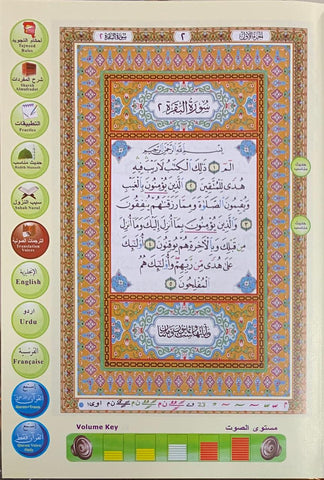 أحكام التجويد
Tajweed Rules
شرح المفردات
Sharah Almufradat
التطبيقات
Practice
حديث مناسب
Hadith Munasib
سبب النزول
Sabab Nuzul
الترجمات الصوتية
Translation Voices
الإنجليزية
English
اردو
Urdu
الفرنسية
Française
الجزء الأول
٢
سورة البقرة ٢
سورة البقرة ٢
بسم الله الرحمن الرحيم
الٓمٓ ١ ذَٰلِكَ الْكِتَٰبُ لَا رَيْبَ فِيهِ
هُدًى لِّلْمُتَّقِينَ ٢ الَّذِينَ يُؤْمِنُونَ بِالْغَيْبِ
وَيُقِيمُونَ الصَّلَوٰةَ وَمِمَّا رَزَقْنَٰهُمْ يُنفِقُونَ
٣ وَالَّذِينَ يُؤْمِنُونَ بِمَا أُنزِلَ إِلَيْكَ وَمَا أُنزِلَ
مِن قَبْلِكَ وَبِالْآخِرَةِ هُمْ يُوقِنُونَ ٤ أُولَٰئِكَ
عَلَىٰ هُدًى مِّن رَّبِّهِمْ وَأُولَٰئِكَ هُمُ
الْمُفْلِحُونَ ٥
حديث مناسب
حديث مناسب
Volume Key
مستوى الصوت